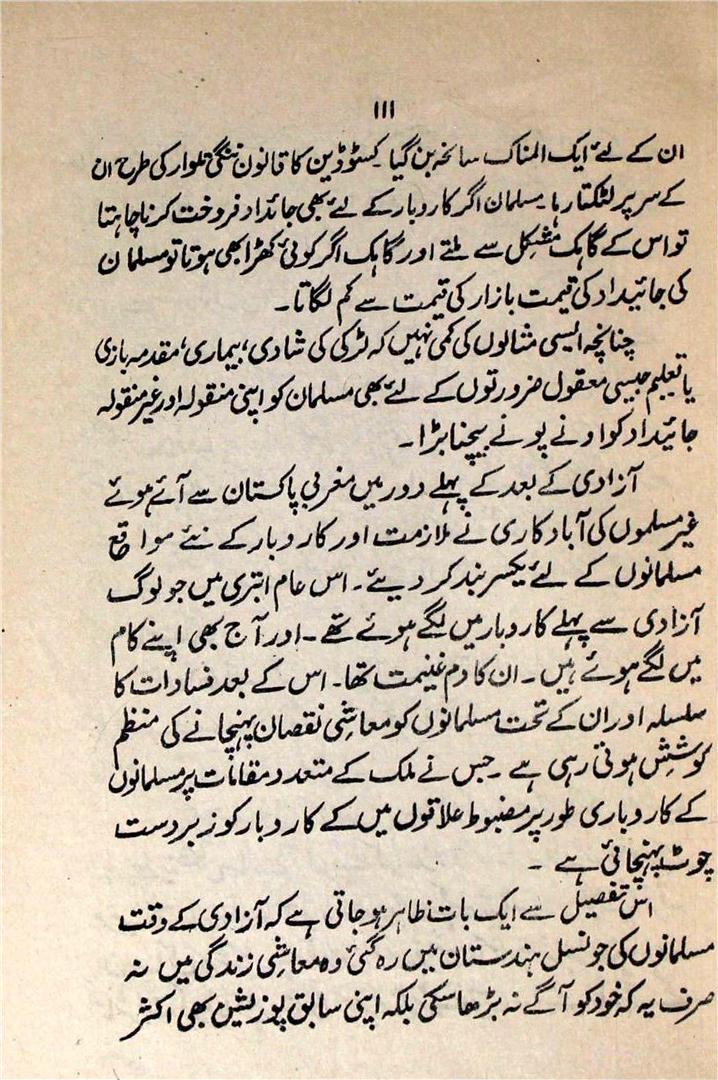 ۱۱۱
ان کے لئے ایک المناک سانحہ بن گیا۔ کسٹوڈین کا قانون ننگی تلوار کی طرح ان
کے سر پر لٹکتا رہا۔ مسلمان اگر کاروبار کے لئے بھی جائداد فروخت کرنا چاہتا
تو اس کے گاہک مشکل سے ملتے اور گاہک اگر کوئی کھڑا بھی ہوتا تو مسلمان
کی جائیداد کی قیمت بازار کی قیمت سے کم لگاتا۔
چنانچہ ایسی مثالوں کی کمی نہیں کہ لڑکی کی شادی، بیماری، مقدمہ بازی
یا تعلیم جیسی معقول ضرورتوں کے لئے بھی مسلمان کو اپنی منقولہ اور غیر منقولہ
جائیداد کو اونے پونے بیچنا پڑا۔
آزادی کے بعد کے پہلے دور میں مغربی پاکستان سے آئے ہوئے
غیر مسلموں کی آبادکاری نے ملازمت اور کاروبار کے نئے مواقع
مسلمانوں کے لئے یکسر بند کر دیئے۔ اس عام ابتری میں جو لوگ
آزادی سے پہلے کاروبار میں لگے ہوئے تھے۔ اور آج بھی اپنے کام
میں لگے ہوئے ہیں۔ ان کا دم غنیمت تھا۔ اس کے بعد فسادات کا
سلسلہ اور ان کے تحت مسلمانوں کو معاشی نقصان پہنچانے کی منظم
کوشش ہوتی رہی ہے۔ جس نے ملک کے متعدد مقامات پر مسلمانوں
کے کاروباری طور پر مضبوط علاقوں میں کے کاروبار کو زبردست
چوٹ پہنچائی ہے۔
اس تفصیل سے ایک بات ظاہر ہو جاتی ہے کہ آزادی کے وقت
مسلمانوں کی جو نسل ہندستان میں رہ گئی وہ معاشی زندگی میں نہ
صرف یہ کہ خود کو آگے نہ بڑھا سکی بلکہ اپنی سابق پوزیشن بھی اکثر